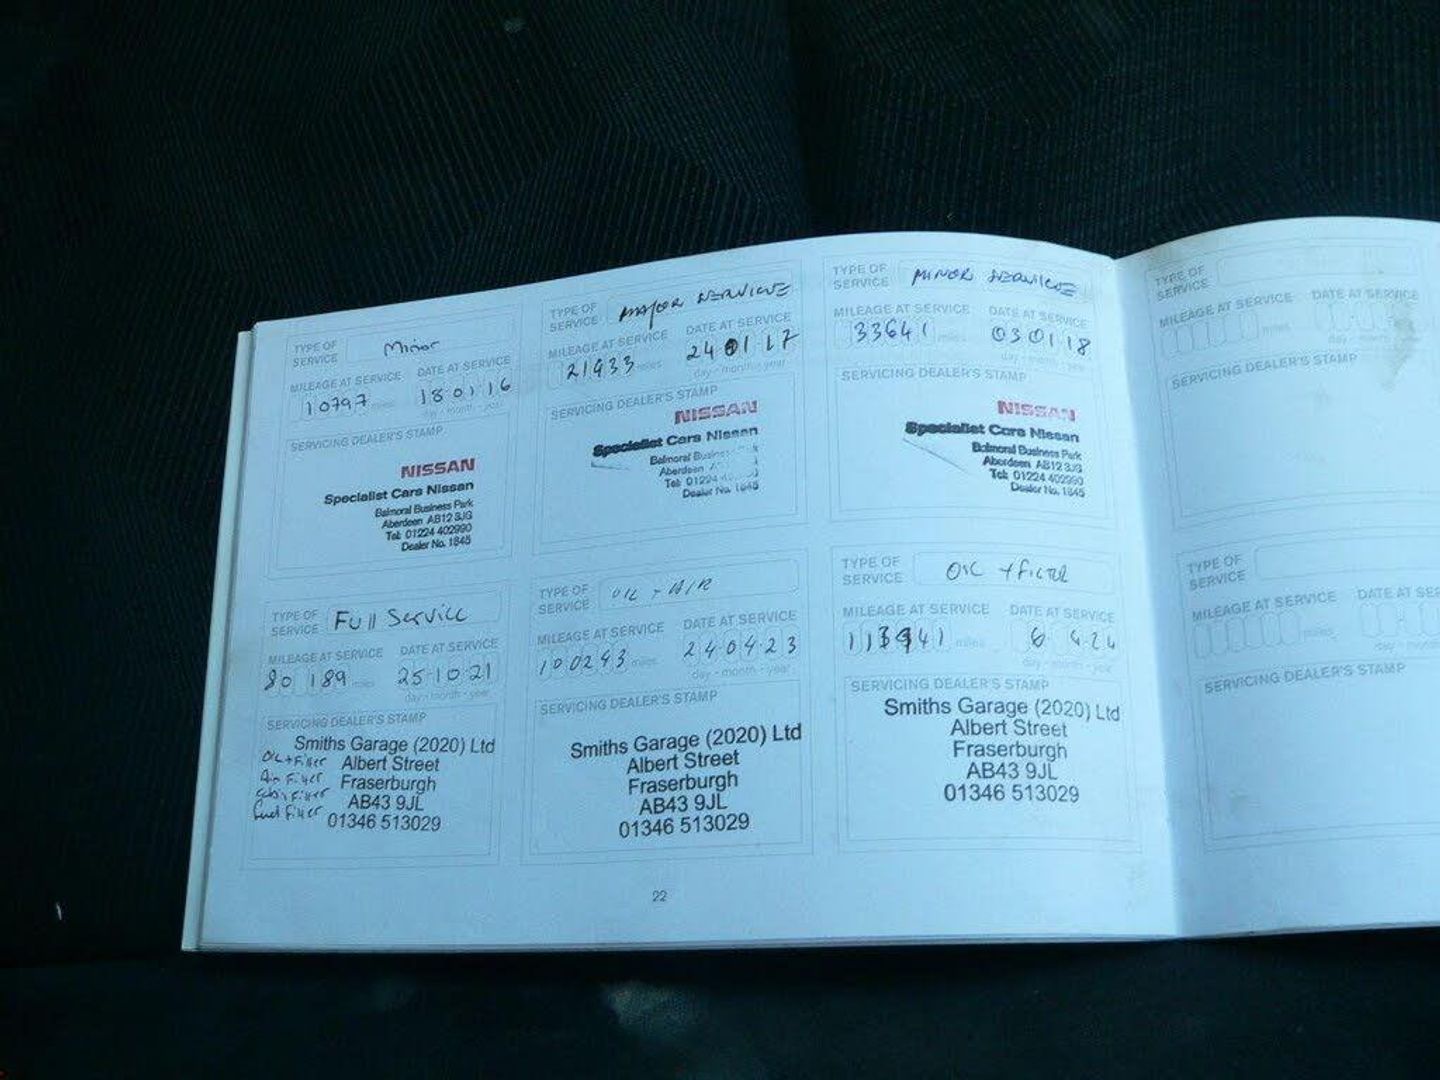 TYPE OF SERVICE Minor
MILEAGE AT SERVICE DATE AT SERVICE
10797 miles 18 01 16
day - month - year
SERVICING DEALER'S STAMP
NISSAN
Specialist Cars Nissan
Balmoral Business Park
Aberdeen AB12 3JG
Tel: 01224 402990
Dealer No. 1845
TYPE OF SERVICE MAJOR SERVICE
MILEAGE AT SERVICE DATE AT SERVICE
21933 miles 24 01 17
day - month - year
SERVICING DEALER'S STAMP
NISSAN
Specialist Cars Nissan
Balmoral Business
Aberdeen
Tel: 01224
Dealer No. 1845
TYPE OF SERVICE MINOR SERVICE
MILEAGE AT SERVICE DATE AT SERVICE
33641 miles 03 01 18
day - month - year
SERVICING DEALER'S STAMP
NISSAN
Specialist Cars Nissan
Balmoral Business Park
Aberdeen AB12 3JG
Tel: 01224 402990
Dealer No. 1845
TYPE OF SERVICE Full Service
MILEAGE AT SERVICE DATE AT SERVICE
80189 miles 25 10 21
day - month - year
SERVICING DEALER'S STAMP
Smiths Garage (2020) Ltd
Oil + Filter Albert Street
Air Filter Fraserburgh
Filter AB43 9JL
Fuel Filter 01346 513029
TYPE OF SERVICE OIL + AIR
MILEAGE AT SERVICE DATE AT SERVICE
100243 miles 24 04 23
day - month - year
SERVICING DEALER'S STAMP
Smiths Garage (2020) Ltd
Albert Street
Fraserburgh
AB43 9JL
01346 513029
TYPE OF SERVICE OIL + FILTER
MILEAGE AT SERVICE DATE AT SERVICE
miles 6 4 24
day - month - year
SERVICING DEALER'S STAMP
Smiths Garage (2020) Ltd
Albert Street
Fraserburgh
AB43 9JL
01346 513029
22
TYPE OF SERVICE
MILEAGE AT SERVICE DATE AT SERVICE
miles
SERVICING DEALER'S STAMP
TYPE OF SERVICE
MILEAGE AT SERVICE DATE AT
miles
SERVICING DEALER'S STAMP